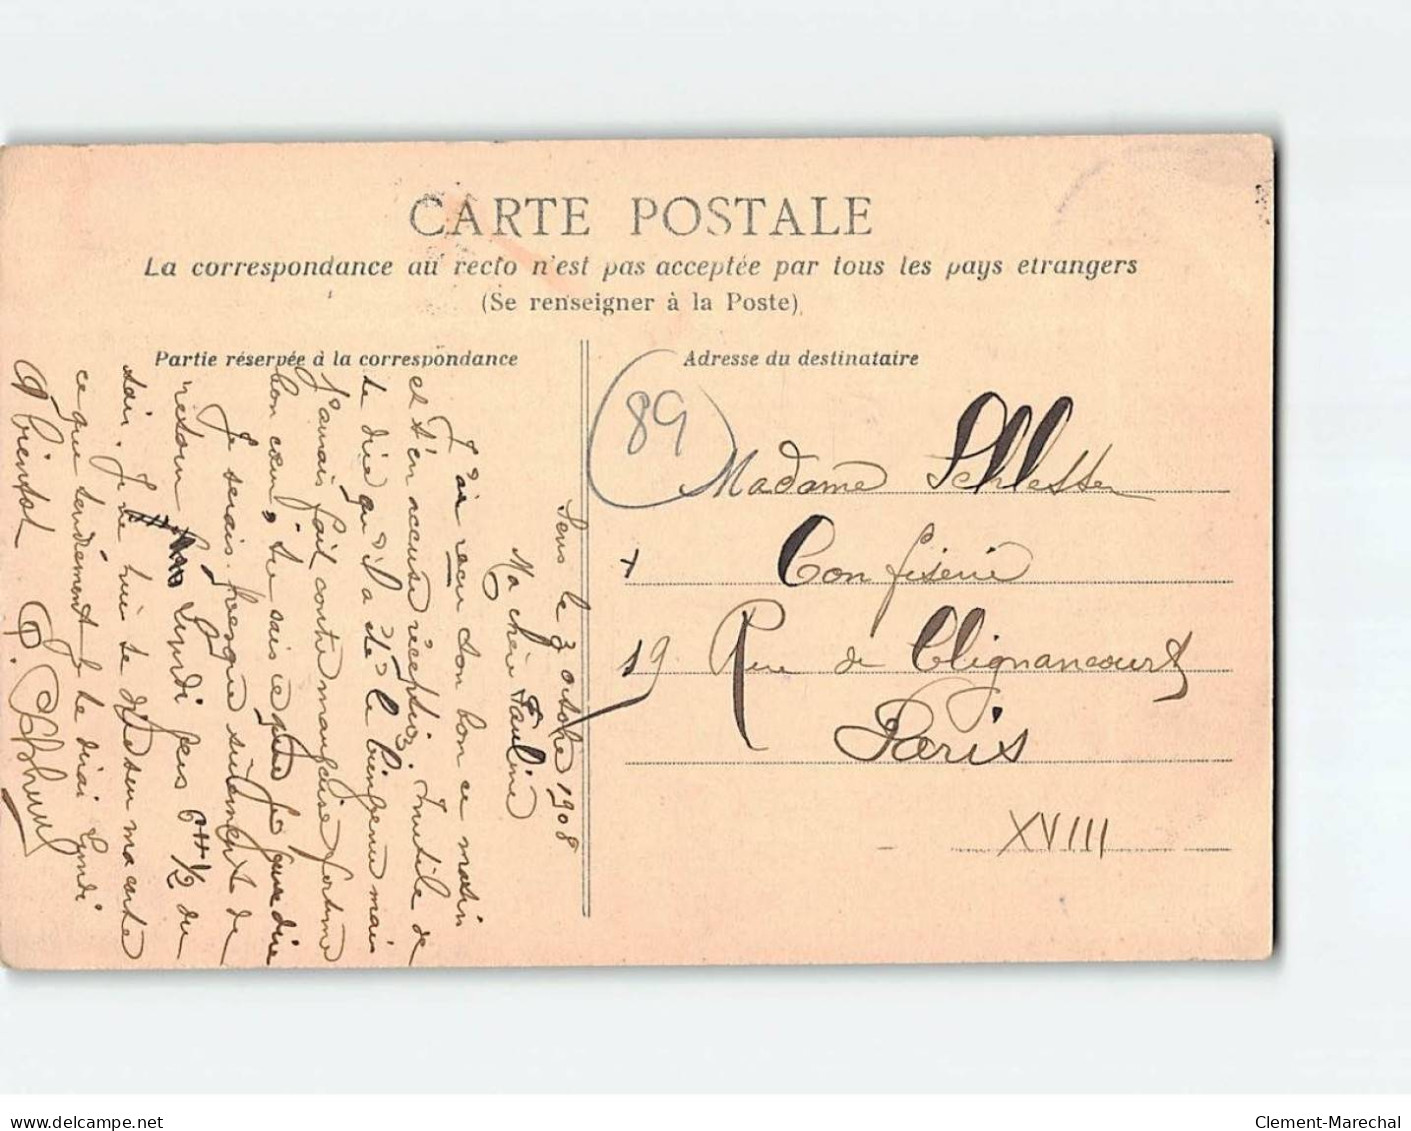 CARTE POSTALE
La correspondance au recto n'est pas acceptée par tous les pays etrangers
(Se renseigner à la Poste)
Partie réservée à la correspondance
Adresse du destinataire
Sens le 3 octobre 1908
Ma chère Pauline
J'ai reçu ton bon ce matin
et t'en accuse réception, Inutile de
te dire qu'il a été le bienvenu mais
J'aurais fait contre mauvaise fortune
bon cœur, tu sais ce que je veux dire
Je serais presque sûrement de
retour Lundi vers 6 H 1/2 du
soir. Je te
ma carte
ce que
je te dirai Lundi
A bientôt
89
Madame Schlesser
Confiserie
19 Rue de Clignancourt
Paris
XVIII
delcampe.net
Clement-Marechal